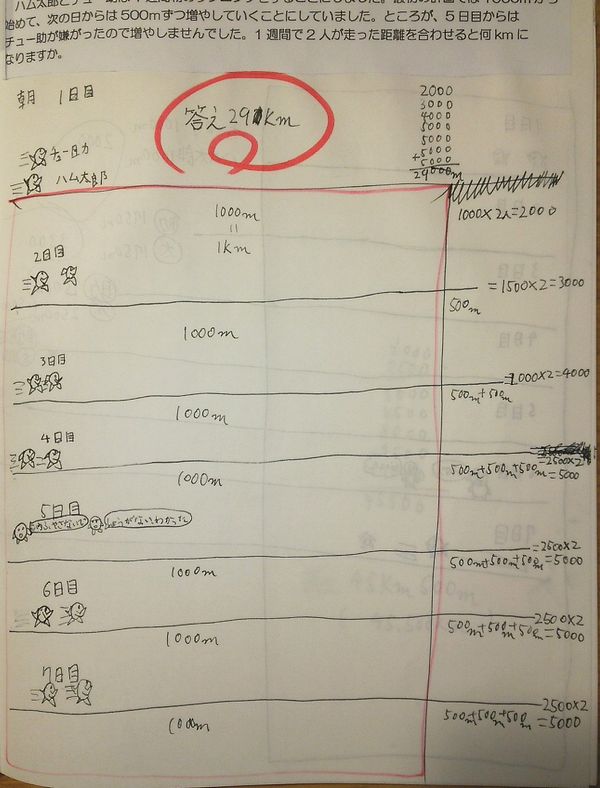 始めて、次の日からは500mずつ増やしていくことにしていました。ところが、5日目からは
チュー助が嫌がったので増やしませんでした。1週間で2人が走った距離を合わせると何kmに
なりますか。
朝 1日目
答え29km
2000
3000
4000
5000
5000
5000
+5000
29000m
チュー助
ハム太郎
1000m
=
1km
1000×2人=2000
2日目
=1500×2=3000
500m
1000m
3日目
000×2=4000
500m+500m
1000m
4日目
=2500×2
500m+500m+500m
=5000
1000m
5日目
もうふやさないで
しょうがないわかった
=2500×2
500m+500m+500m=5000
1000m
6日目
2500×2
500m+500m+500m=5000
1000m
7日目
2500×2
500m+500m+500m=5000
1000m